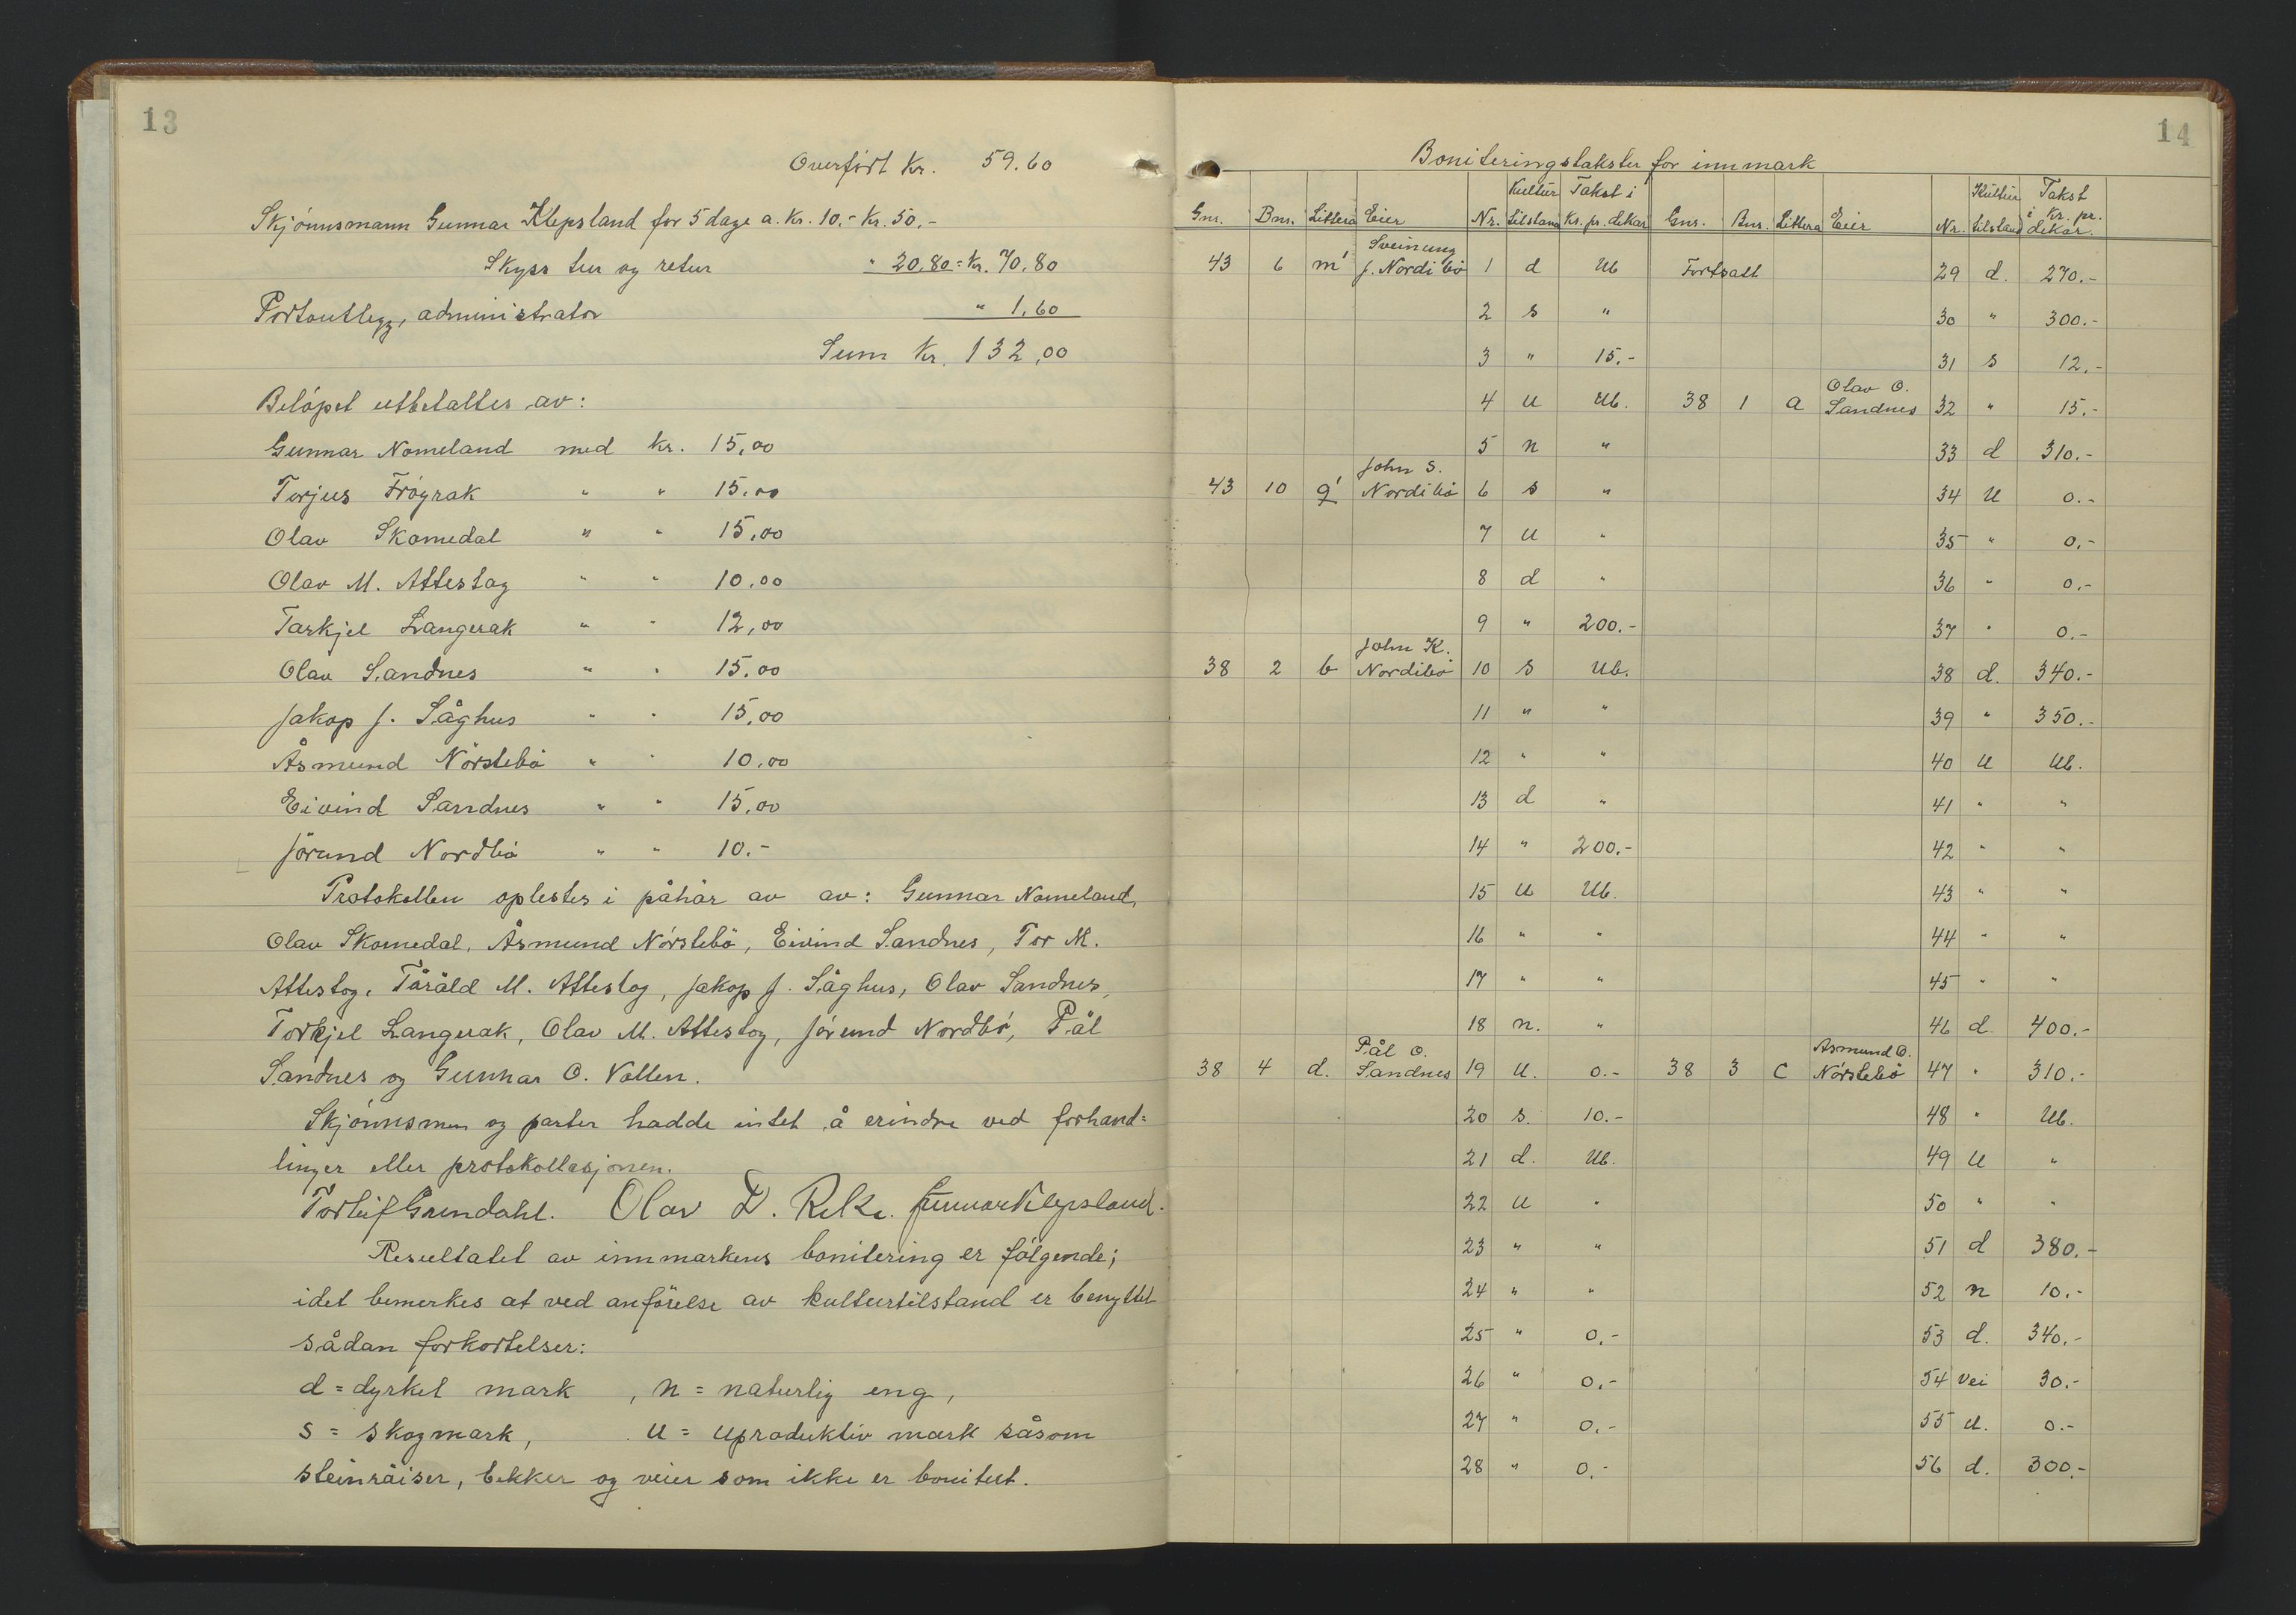 13
Overført Kr. 59.60
Skjønnsmann Gunnar Klepsland for 5 dage a. Kr. 10,- Kr. 50,-
Skyss tur og retur " 20,80 = Kr. 70,80
Portoutlegg, administrator " 1,60
Sum Kr. 132,00
Beløpet utbetaltes av:
Gunnar Nomeland med kr. 15,00
Torjus Frøyrak " " 15,00
Olav Skomedal " " 15,00
Olav M. Attestog " " 10,00
Tarkjel Langerak " " 12,00
Olav Sandnes " " 15,00
Jakop J. Såghus " " 15,00
Åsmund Nørstebø " " 10,00
Eivind Sandnes " " 15,00
Jørund Nordbø " " 10.-
Protokollen oplestes i påhør av av: Gunnar Nomeland,
Olav Skomedal, Åsmund Nørstebø, Eivind Sandnes, Tor M.
Attestog, Tåråld M. Attestog, Jakop J. Såghus, Olav Sandnes,
Torkjel Langerak, Olav M. Attestog, Jørund Nordbø, Pål
Sandnes og Gunnar O. Vollen.
Skjønnsmen og parter hadde intet å erindre ved forhand=
linger eller protokollasjonen.
Torleif Grendahl. Olav D. Rike. Gunnar Klepsland.
Resultatet av innmarkens bonitering er følgende;
idet bemerkes at ved anførelse av kulturtilstand er benyttet
sådan forkortelser:
d = dyrket mark , n = naturlig eng,
s = skogmark, u = uproduktiv mark såsom
steinrøiser, bekker og veier som ikke er bonitert.
14
Boniteringstakster for innmark
Gnr. Bnr. Littera Eier Nr. Kultur tilstand Takst i Kr. pr. dekar Gnr. Bnr. Littera Eier Nr. Kultur tilstand Takst i Kr. pr. dekar.
43 6 m' Sveinung J. Nordibø 1 d Ub Fortsatt 29 d. 270.-
2 s " 30 " 300.-
3 " 15.- 31 s 12,-
4 u Ub. 38 1 a Olav O. Sandnes 32 " 15.-
5 n " 33 d 310.-
43 10 q' John S. Nordibø 6 s " 34 u 0.-
7 u " 35 " 0,-
8 d " 36 " 0.-
9 " 200.- 37 " 0.-
38 2 b John K. Nordibø 10 s Ub. 38 d. 340.-
11 " " 39 " 350.-
12 " " 40 u Ub.
13 d " 41 " "
14 " 200.- 42 " "
15 u Ub. 43 " "
16 " " 44 " "
17 " " 45 " "
18 n. " 46 d 400.-
38 4 d. Pål O. Sandnes 19 u. 0.- 38 3 c Asmund O. Nørstebø 47 " 310.-
20 s. 10.- 48 " Ub.
21 d. Ub. 49 u "
22 u " 50 " "
23 " " 51 d 380.-
24 " " 52 n 10.-
25 " 0,- 53 d. 340.-
26 " 0,- 54 vei 30.-
27 " 0.- 55 u. 0.-
28 " 0,- 56 d. 300.-